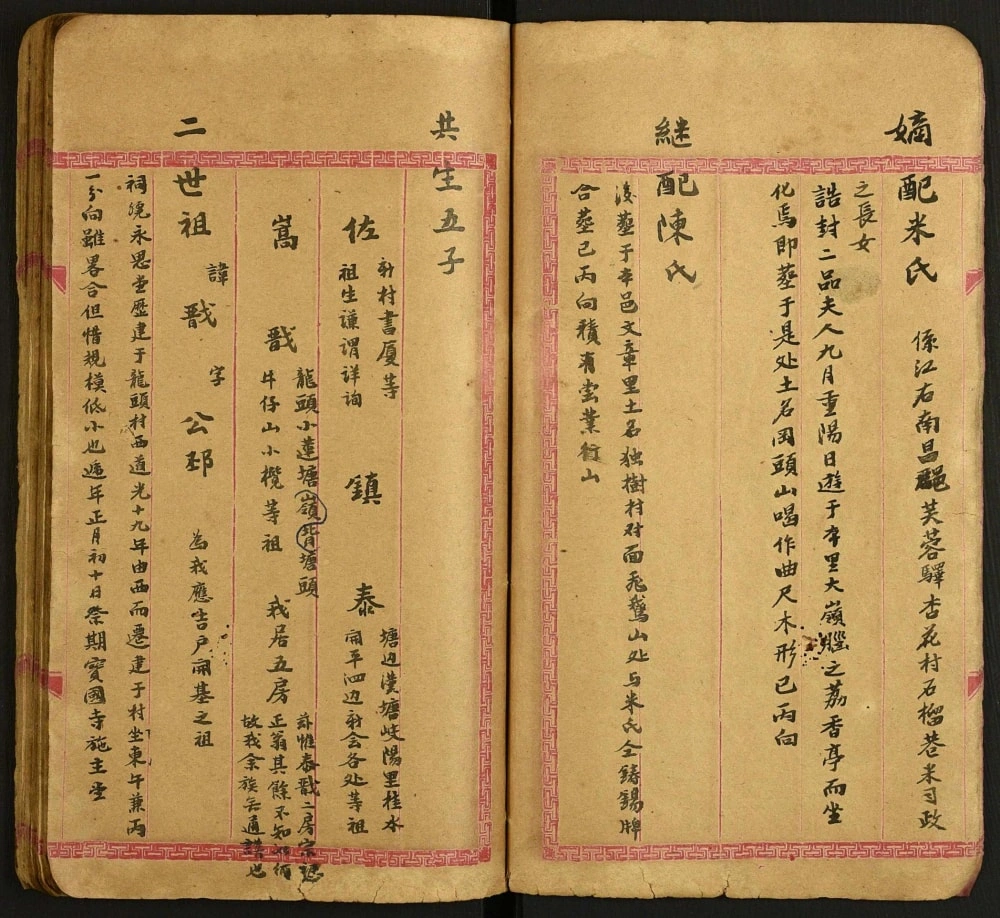 嫡配米氏 係江右南昌郡芙蓉驛杏花村石榴巷米司政
之長女
誥封二品夫人九月重陽日遊于本里大嶺腦之荔香亭而坐
化焉即葬于是处土名因頭山喝作曲尺木形已丙向
継配陳氏
後葬于本邑文章里土名独樹村对面飛鵞山处与米氏仝鑄錫牌
合葬已丙向積有尝業衙山
共生五子
佐 祖生謙谓详詢
村書厦等
鎮
泰 塘边漢塘岐陽里桂水
開平泗边会各处等祖
嵩
戬 龍頭小莲塘嶺背塘頭
牛仔山小欖等祖
我居五房 惟泰戬二房宗
正翁其餘不知
故我余族去通譜也
二世祖 諱戬 字公邳 為我應吉户開基之祖
祠繞永思堂歷建于龍頭村西道光十九年由西而遷建于村坐東午兼丙
一分向雖畧合但惜規模低小也遞年正月初十日祭期寶國寺施主堂